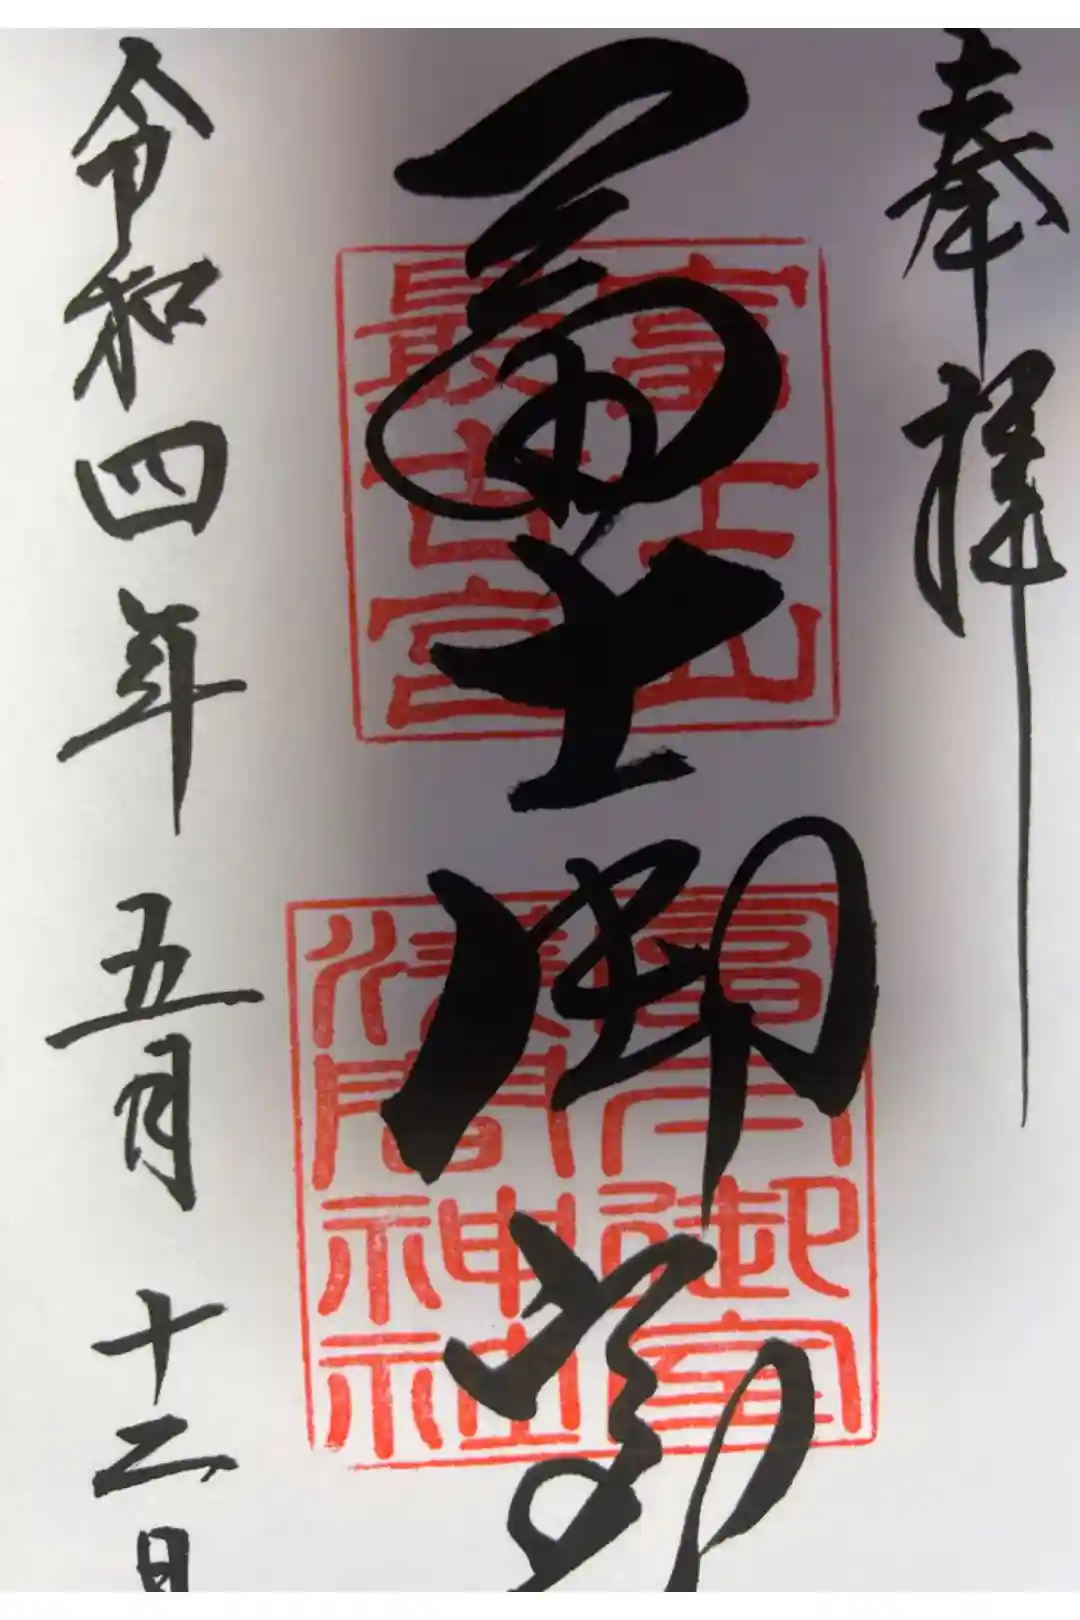 奉拝
富士御
富士山
最古宮
冨士御室
淺間神社
令和四年五月十二日